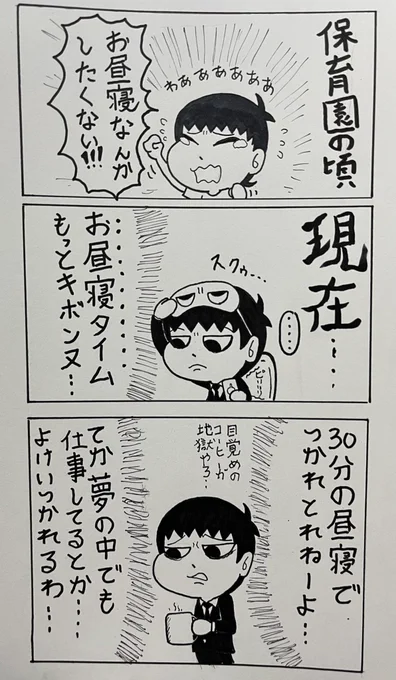 保育園の頃
わぁぁぁぁぁぁぁ
お昼寝なんか
したくない!!!
現在・・・・
・・・・
スクッ・・・
お昼寝タイム
もっとキボンヌ・・・
30分の昼寝で
つかれとれねーよ・・・
目覚めの
コーヒーが
地獄やろ・・・
てか夢の中でも
仕事してるとか・・・・
よけいつかれるわ・・・